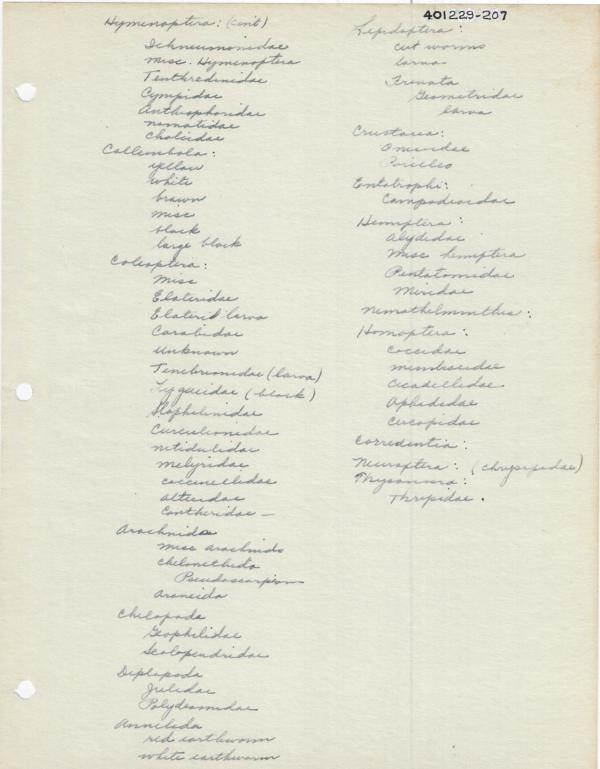 401229-207
Hymenoptera: (cont)
Ichneumonidae
Misc. Hymenoptera
Tenthredinidae
Cynipidae
Anthophoridae
Chalcidae
Collembola:
yellow
white
brown
misc
black
large black
Coleoptera:
Misc
Elateridae
Elaterid larva
Carabidae
Unknown
Tenebrionidae (larva)
Lygaeidae (black)
Staphelinidae
Curculionidae
Nitidulidae
Melyridae
Coccinellidae
Alticidae
Cantheridae —
Arachnida
Misc arachnids
Chelonethida
Pseudoscorpion
Araneida
Chilopoda
Geophilidae
Scolopendridae
Diplopoda
Julidae
Polydesmidae
Annelida
red earthworm
white earthworm
Lepidoptera:
cut worms
larva
Frenata
Geometridae
larva
Crustacea:
Oniscidae
Entotrophi:
Campodeidae
Hemiptera:
Alydidae
Misc hemiptera
Pentatomidae
Miridae
Nemathelminthes:
Homoptera:
Coccidae
Membracidae
Cicadellidae
Aphididae
Cercopidae
Corrodentia:
Neuroptera: (chrysopidae)
Thysanura:
Thripidae.